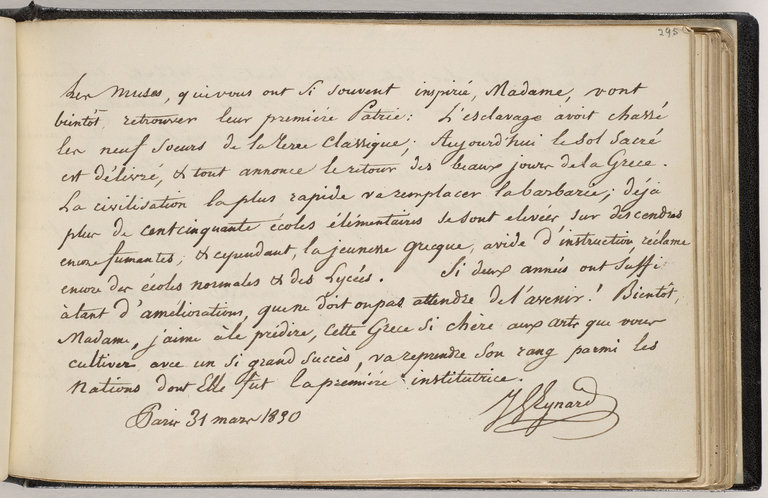 295
Les Muses, qui vous ont si souvent inspiré, Madame, vont
bientôt, retrouver leur première Patrie: L'esclavage avoit chassé
les neuf soeurs de la terre Classique; Aujourd'hui le sol sacré
est délivré, & tout annonce le retour des beaux jours de la Grece.
La civilisation la plus rapide va remplacer la barbarie; déjà
plus de cent cinquante écoles élémentaires se sont elevées sur des cendres
encore fumantes; & cependant, la jeunesse grecque, avide d'instruction, réclame
encore des écoles normales & des Lycées. Si deux années ont suffi
à tant d'améliorations, que ne doit on pas attendre de l'avenir! Bientôt,
Madame, j'aime à le prédire, cette Grece si chère aux arts que vous
cultivez avec un si grand succès, va reprendre son rang parmi les
Nations dont Elle fut la première institutrice.
Paris 31 mars 1830
JG Eynard